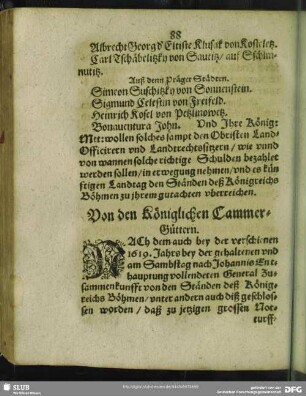 88
Albrecht Georg d' Eltiste Klusak von Kosteletz.
Carl Tschäbelitzky von Sautitz/ auf Sschim-
nutitz.
Auß denn Präger Städten.
Simeon Suschitzky von Sonnenstein.
Sigmund Celestin von Freifeld.
Heinrich Kosel von Petzlinowetz.
Bonaventura John. Vnd Ihre König:
Mtt: wollen solches sampt den Obristen Land-
Officirern vnd Landrechtsitzern/ wie vnnd
von wannen solche richtige Schulden bezahlet
werden sollen/ in erwegung nehmen/vnd es fün-
ftigen Landtag den Ständen deß Königreichs
Böhmen zu ihrem gutachten vberreichen.
Von den Königlichen Cammer-
Güttern.
NACh dem auch bey der verschienen
1619. Jahrs bey der gehaltenen vnd
am Sambstag nach Johannis Ent-
hauptung vollendeten General Zu-
sammenkunfft von den Ständen deß König-
reichs Böhmen/ vnter andern auch diß geschlos-
sen worden/ daß zu jetzigen grossen Not-
turff-
SLUB